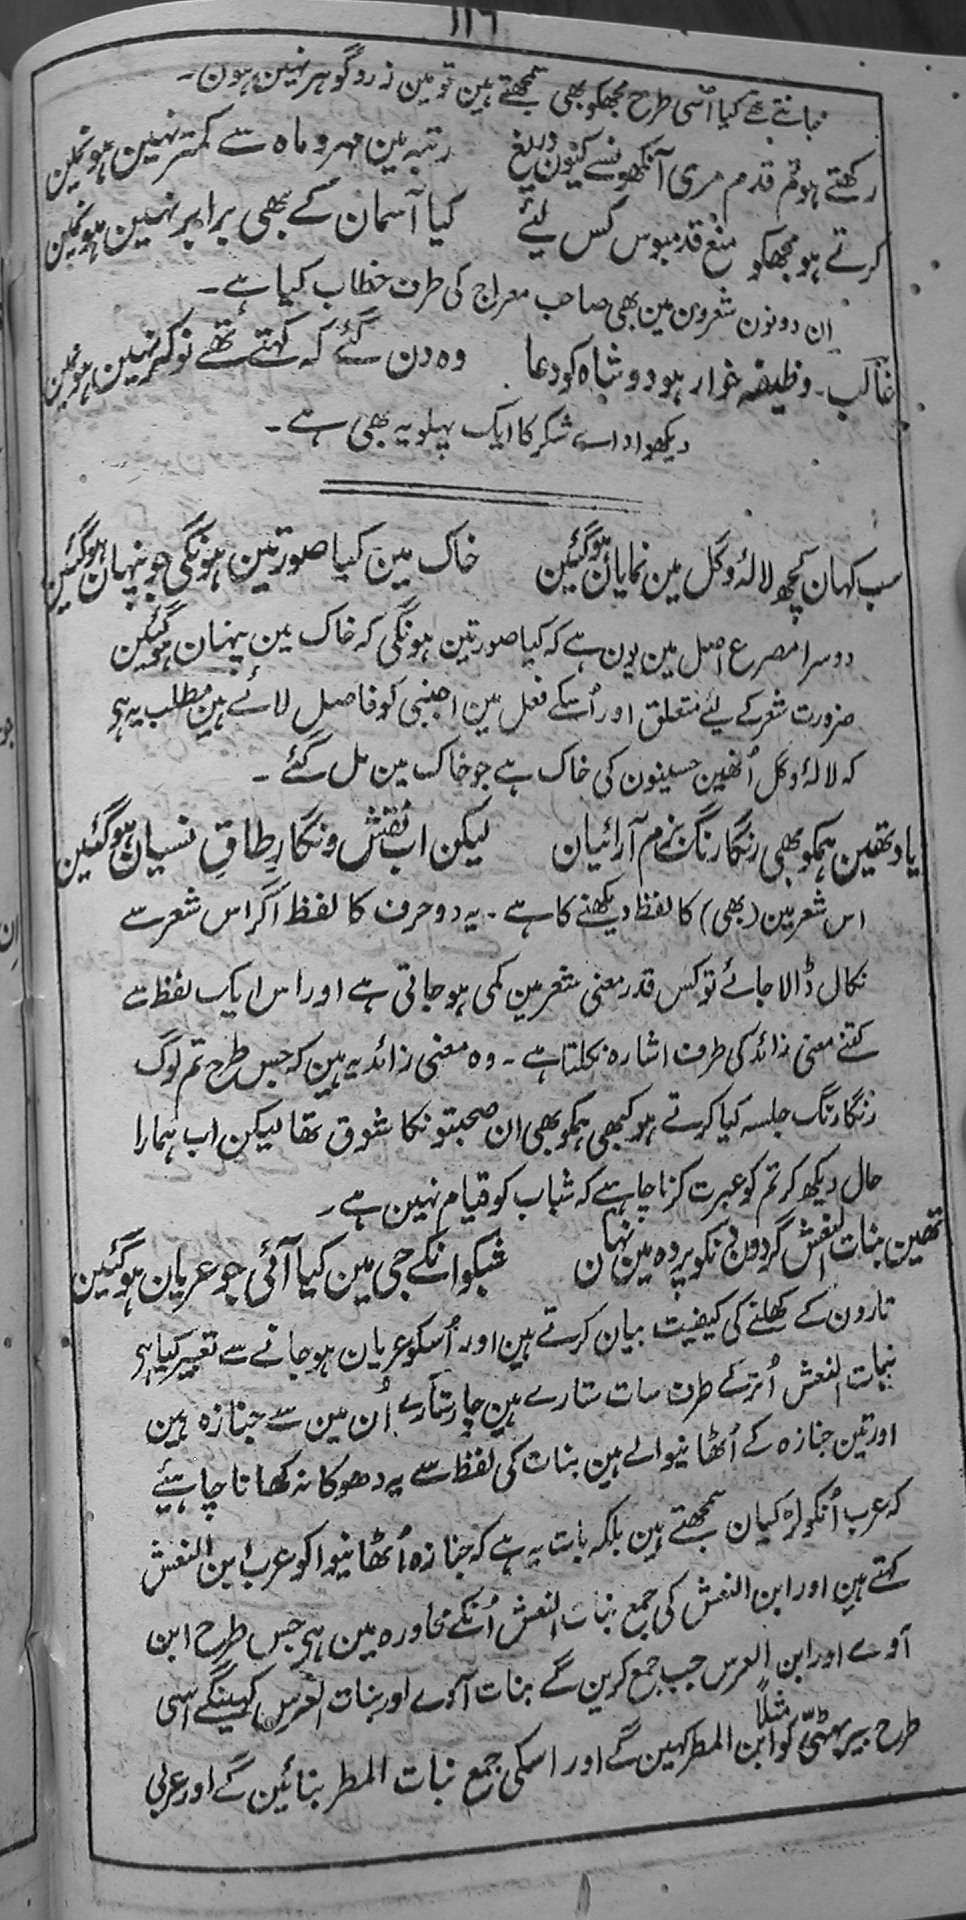 ۱۱۶
نجانتے تھے کیا اُسی طرح مجھکو بھی سمجھتے ہین تو مین زر و گوہر نہین ہون۔
رکھتے ہو تم قدم مری آنکھونسے کیون دریغ رتبہ مین مہر و ماہ سے کمتر نہین ہونمین
کرتے ہو مجھکو منع قدمبوس کس لیئے کیا آسمان کے بھی برابر نہین ہونمین
ان دونون شعرون مین بھی صاحب معراج کی طرف خطاب کیا ہے۔
غالب۔ وظیفہ خوار ہو دو شاہ کو دعا وہ دن گئے کہ کہتے تھے نوکر نہین ہونمین
دیکھو اداے شکر کا ایک پہلو یہ بھی ہے۔
سب کہان کچھ لالۂ و گل مین نمایان ہوگئین خاک مین کیا صورتین ہونگی جو پنہان ہوگئین
دوسرا مصرع اصل مین یون ہے کہ کیا صورتین ہونگی کہ خاک مین پنہان ہوگئین
ضرورت شعر کے لیئے متعلق اور اُسکے فعل مین اجنبی کو فاصل لائے ہین مطلب یہ ہی
کہ لالۂ و گل اُنھین حسینون کی خاک ہے جو خاک مین مل گئے۔
یاد تھین ہمکو بھی رنگارنگ بزم آرائیان لیکن اب نقش و نگارِ طاقِ نسیان ہوگئین
اس شعر مین (بھی) کا لفظ دیکھنے کا ہے۔ یہ دو حرف کا لفظ اگر اس شعر سے
نکال ڈالا جائے تو کس قدر معنی شعر مین کمی ہو جاتی ہے اور اس ایک لفظ سے
کتنے معنی زائد کی طرف اشارہ نکلتا ہے۔ وہ معنی زائد یہ ہین کہ جس طرح تم لوگ
رنگارنگ جلسہ کیا کرتے ہو کبھی ہمکو بھی ان صحبتونکا شوق تھا لیکن اب ہمارا
حال دیکھ کر تم کو عبرت کرنا چاہے کہ شباب کو قیام نہین ہے۔
تھین بنات النعش گردون دنکو پردہ مین نہان شبکو انکے جی مین کیا آئی جو عریان ہوگئین
تارون کے کھلنے کی کیفیت بیان کرتے ہین اور اُسکو عریان ہو جانے سے تعبیر کیا ہی
بنات النعش اُترکے طرف سات ستارے ہین چار ستارے اُن مین سے جنازہ ہین
اور تین جنازہ کے اُٹھانیوالے ہین بنات کی لفظ سے یہ دھوکا نہ کھانا چاہیئے
کہ عرب اُنکو لڑکیان سمجھتے ہین بلکہ بات یہ ہے کہ جنازہ اُٹھانیوا کو عرب ابن النعش
کہتے ہین اور ابن النعش کی جمع بنات النعش اُنکے محاورہ مین ہی جس طرح ابن
آوے اور ابن العرس جب جمع کرین گے بنات آوے اور بنات العرس کہینگے اسی
طرح بیربہٹی کو مثلاً ابن المطر کہین گے اور اسکی جمع بنات المطر بنائین گے اور عربی